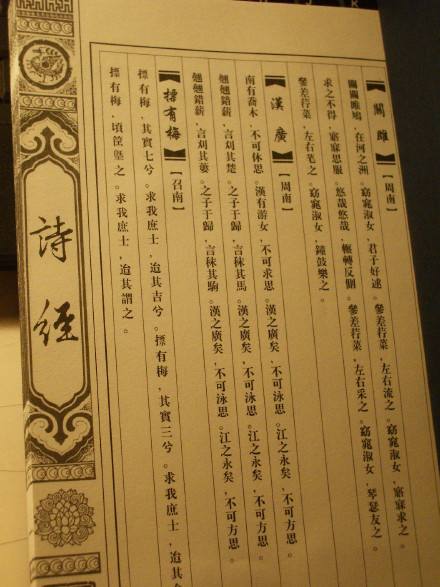 【關雎】【周南】
關關雎鳩,在河之洲。窈窕淑女,君子好逑。參差荇菜,左右流之。窈窕淑女,寤寐求之。
求之不得,寤寐思服。悠哉悠哉,輾轉反側。參差荇菜,左右采之。窈窕淑女,琴瑟友之。
參差荇菜,左右芼之。窈窕淑女,鐘鼓樂之。
【漢廣】【周南】
南有喬木,不可休思。漢有游女,不可求思。漢之廣矣,不可泳思。江之永矣,不可方思。
翹翹錯薪,言刈其楚。之子于歸,言秣其馬。漢之廣矣,不可泳思。江之永矣,不可方思。
翹翹錯薪,言刈其蔞。之子于歸,言秣其駒。漢之廣矣,不可泳思。江之永矣,不可方思。
【摽有梅】【召南】
摽有梅,其實七兮。求我庶士,迨其吉兮。摽有梅,其實三兮。求我庶士,迨其
摽有梅,頃筐塈之。求我庶士,迨其謂之。
詩經